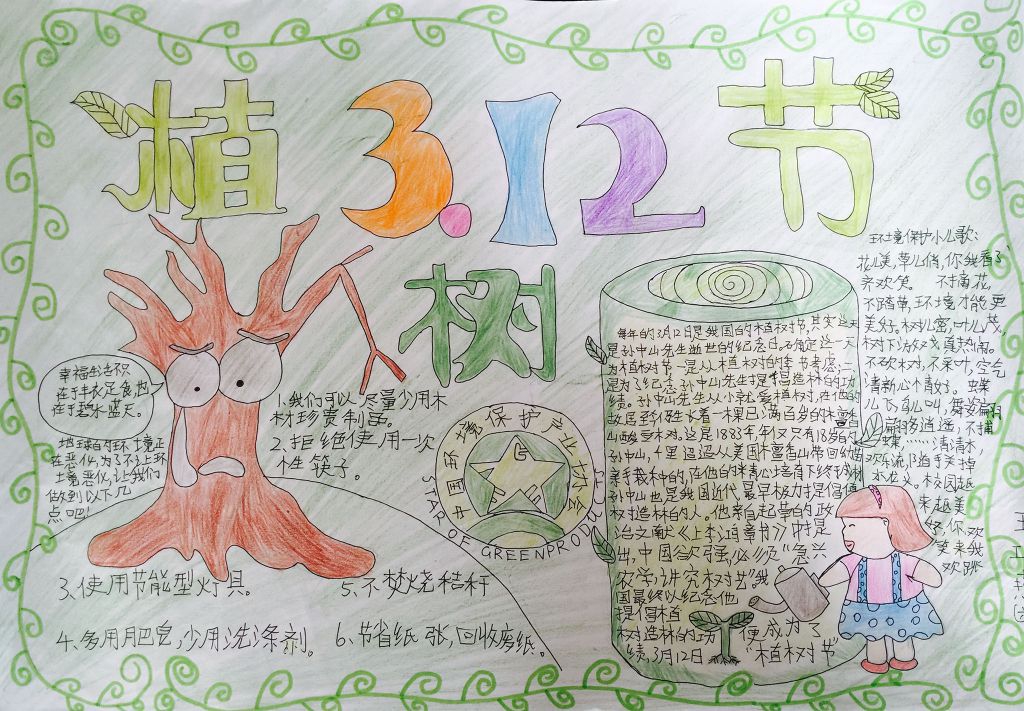 植
3.12
节
树
幸福生活不只
在于丰衣足食也
在于碧水蓝天。
地球的环境正
在恶化,为了不让环
境恶化,让我们
做到以下几
点吧!
1.我们可以尽量少用木
材珍贵制品。
2.拒绝使用一次
性筷子。
3.使用节能型灯具。
4.多用肥皂,少用洗涤剂。
5.不焚烧秸秆
6.节省纸张,回收废纸。
中国环境保护产业协会
STAR OF GREENPRODUCTS
每年的3月12日是我国的植树节,其实这天
是孙中山先生逝世的纪念日。确定这一天
为植树节一是从植树的季节考虑,二
是为了纪念孙中山先生提倡造林的功
绩。孙中山先生从小就爱植树,在他的
故居至今仍生长着一棵已满百岁的木檀香
山酸豆树。这是1883年,年仅只有18岁的
孙中山,千里迢迢从美国檀香山带回的
亲手栽种的,在他的精心培育下终于成树
孙中山也是我国近代最早极力提倡植
树造林的人。他亲自起草的政
治文献《上李鸿章书》中提
出,中国欲强,必须"急兴
农学,讲究树艺"。我
国最终以纪念他
提倡植
树造林的功 便成为了
绩,3月12日 "植树节"
环境保护小儿歌:
花儿美,草儿俏,你我看了
齐欢笑。不摘花,
不踏草,环境才能更
美好。树儿密,叶儿茂,
树下游戏真热闹。
不砍树,不采叶,空气
清新心情好。蝶
儿飞,鸟儿叫,舞姿翩
翩多逍遥,不捕
蝶……清清水,
欢乐流,随手关掉
水龙头。校园越
来越美
好,你欢
笑来我
欢跳